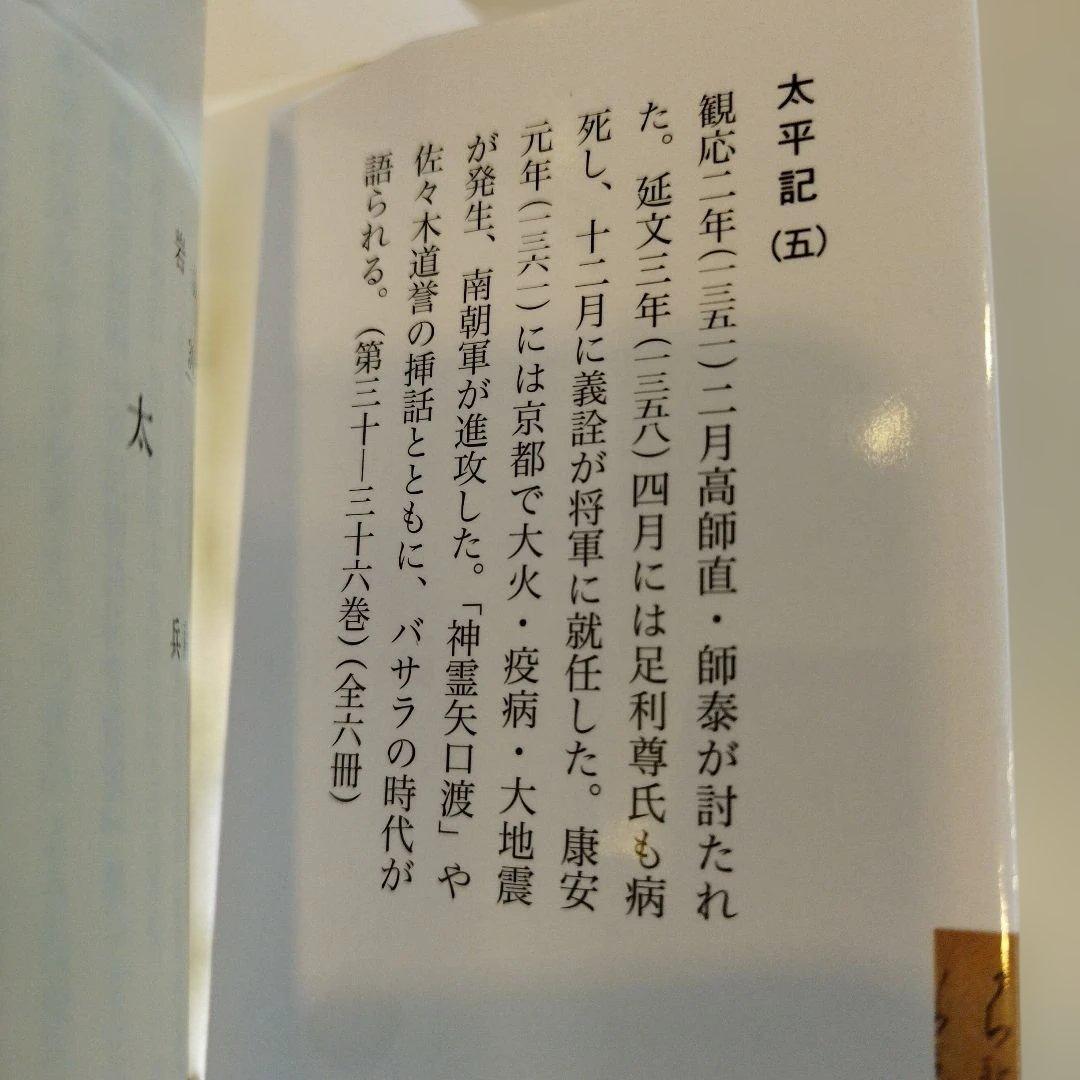 太平記(五)
観応二年(一三五一)二月高師直・師泰が討たれ
た。延文三年(一三五八)四月には足利尊氏も病
死し、十二月に義詮が将軍に就任した。康安
元年(一三六一)には京都で大火・疫病・大地震
が発生、南朝軍が進攻した。「神霊矢口渡」や
佐々木道誉の挿話とともに、バサラの時代が
語られる。(第三十―三十六巻)(全六冊)
太
兵